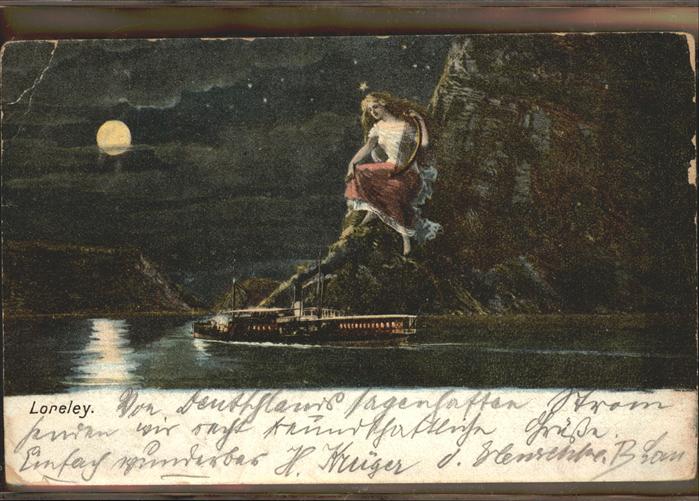 Loreley.
Von Deutschlands sagenhaften Strom
senden wir recht freundschaftliche Grüße.
Einfach wunderbar H. Krüger